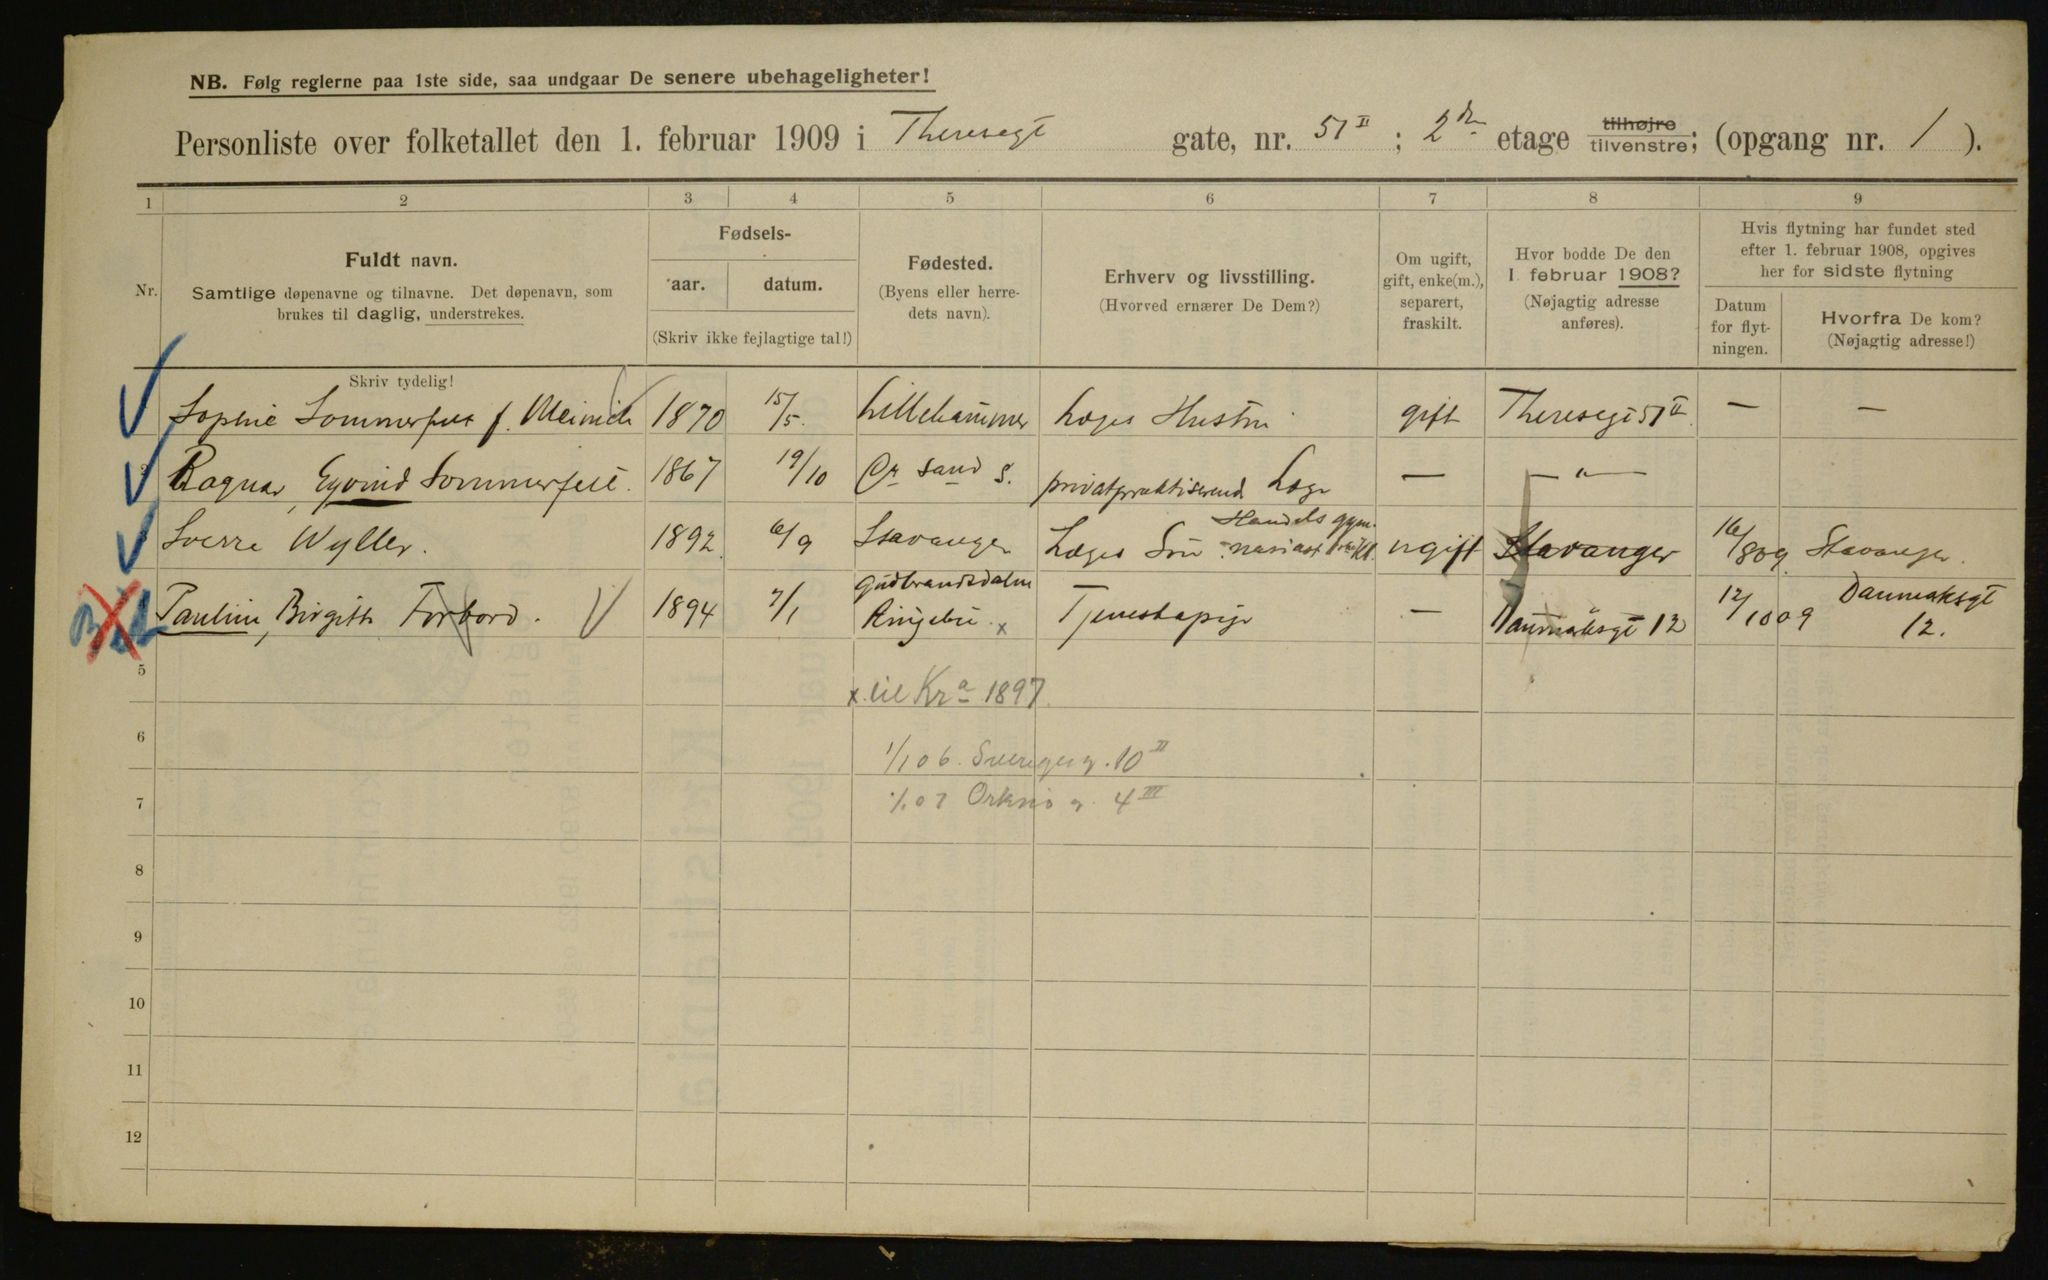 NB. Følg reglerne paa 1ste side, saa undgaar De senere ubehageligheter!
Personliste over folketallet den 1. februar 1909 i Theresegt gate, nr. 51 II ; 2den etage tilhøjre tilvenstre; (opgang nr. 1 ).
1 2 3 4 5 6 7 8 9
Nr.
Fuldt navn.
Samtlige døpenavne og tilnavne. Det døpenavn, som
brukes til daglig, understrekes.
Skriv tydelig!
Fødsels-
aar. datum.
(Skriv ikke fejlagtige tal!)
Fødested.
(Byens eller herre-
dets navn).
Erhverv og livsstilling.
(Hvorved ernærer De Dem?)
Om ugift,
gift, enke(m.),
separert,
fraskilt.
Hvor bodde De den
1. februar 1908?
(Nøjagtig adresse
anføres).
Hvis flytning har fundet sted
efter 1. februar 1908, opgives
her for sidste flytning
Datum
for flyt-
ningen.
Hvorfra De kom?
(Nøjagtig adresse!)
Sophie Sommerfelt f. Meinich 1870 15/5. Lillehammer Læges Hustru gift Theresegt 51 II — —
Ragnar, Eyvind Sommerfelt. 1867 19/10 Cr sand S. privatpraktiserende Læge — — " —
Sverre Wyller. 1892 6/9 Stavanger Læges Søn Handelsgym-
nasiast ugift Stavanger 16/8 09 Stavanger.
Pauline, Birgitte Forbord. 1894 7/1 Gudbrandsdalen
Ringebu x Tjenestepige — Danmarksgt 12 12/10 09 Danmaksgt
12.
5
x til Kra 1897
6
1/1 06. Sverigesg. 10 II
7
1/1 07 Orknø g. 4 III
8
9
10
11
12